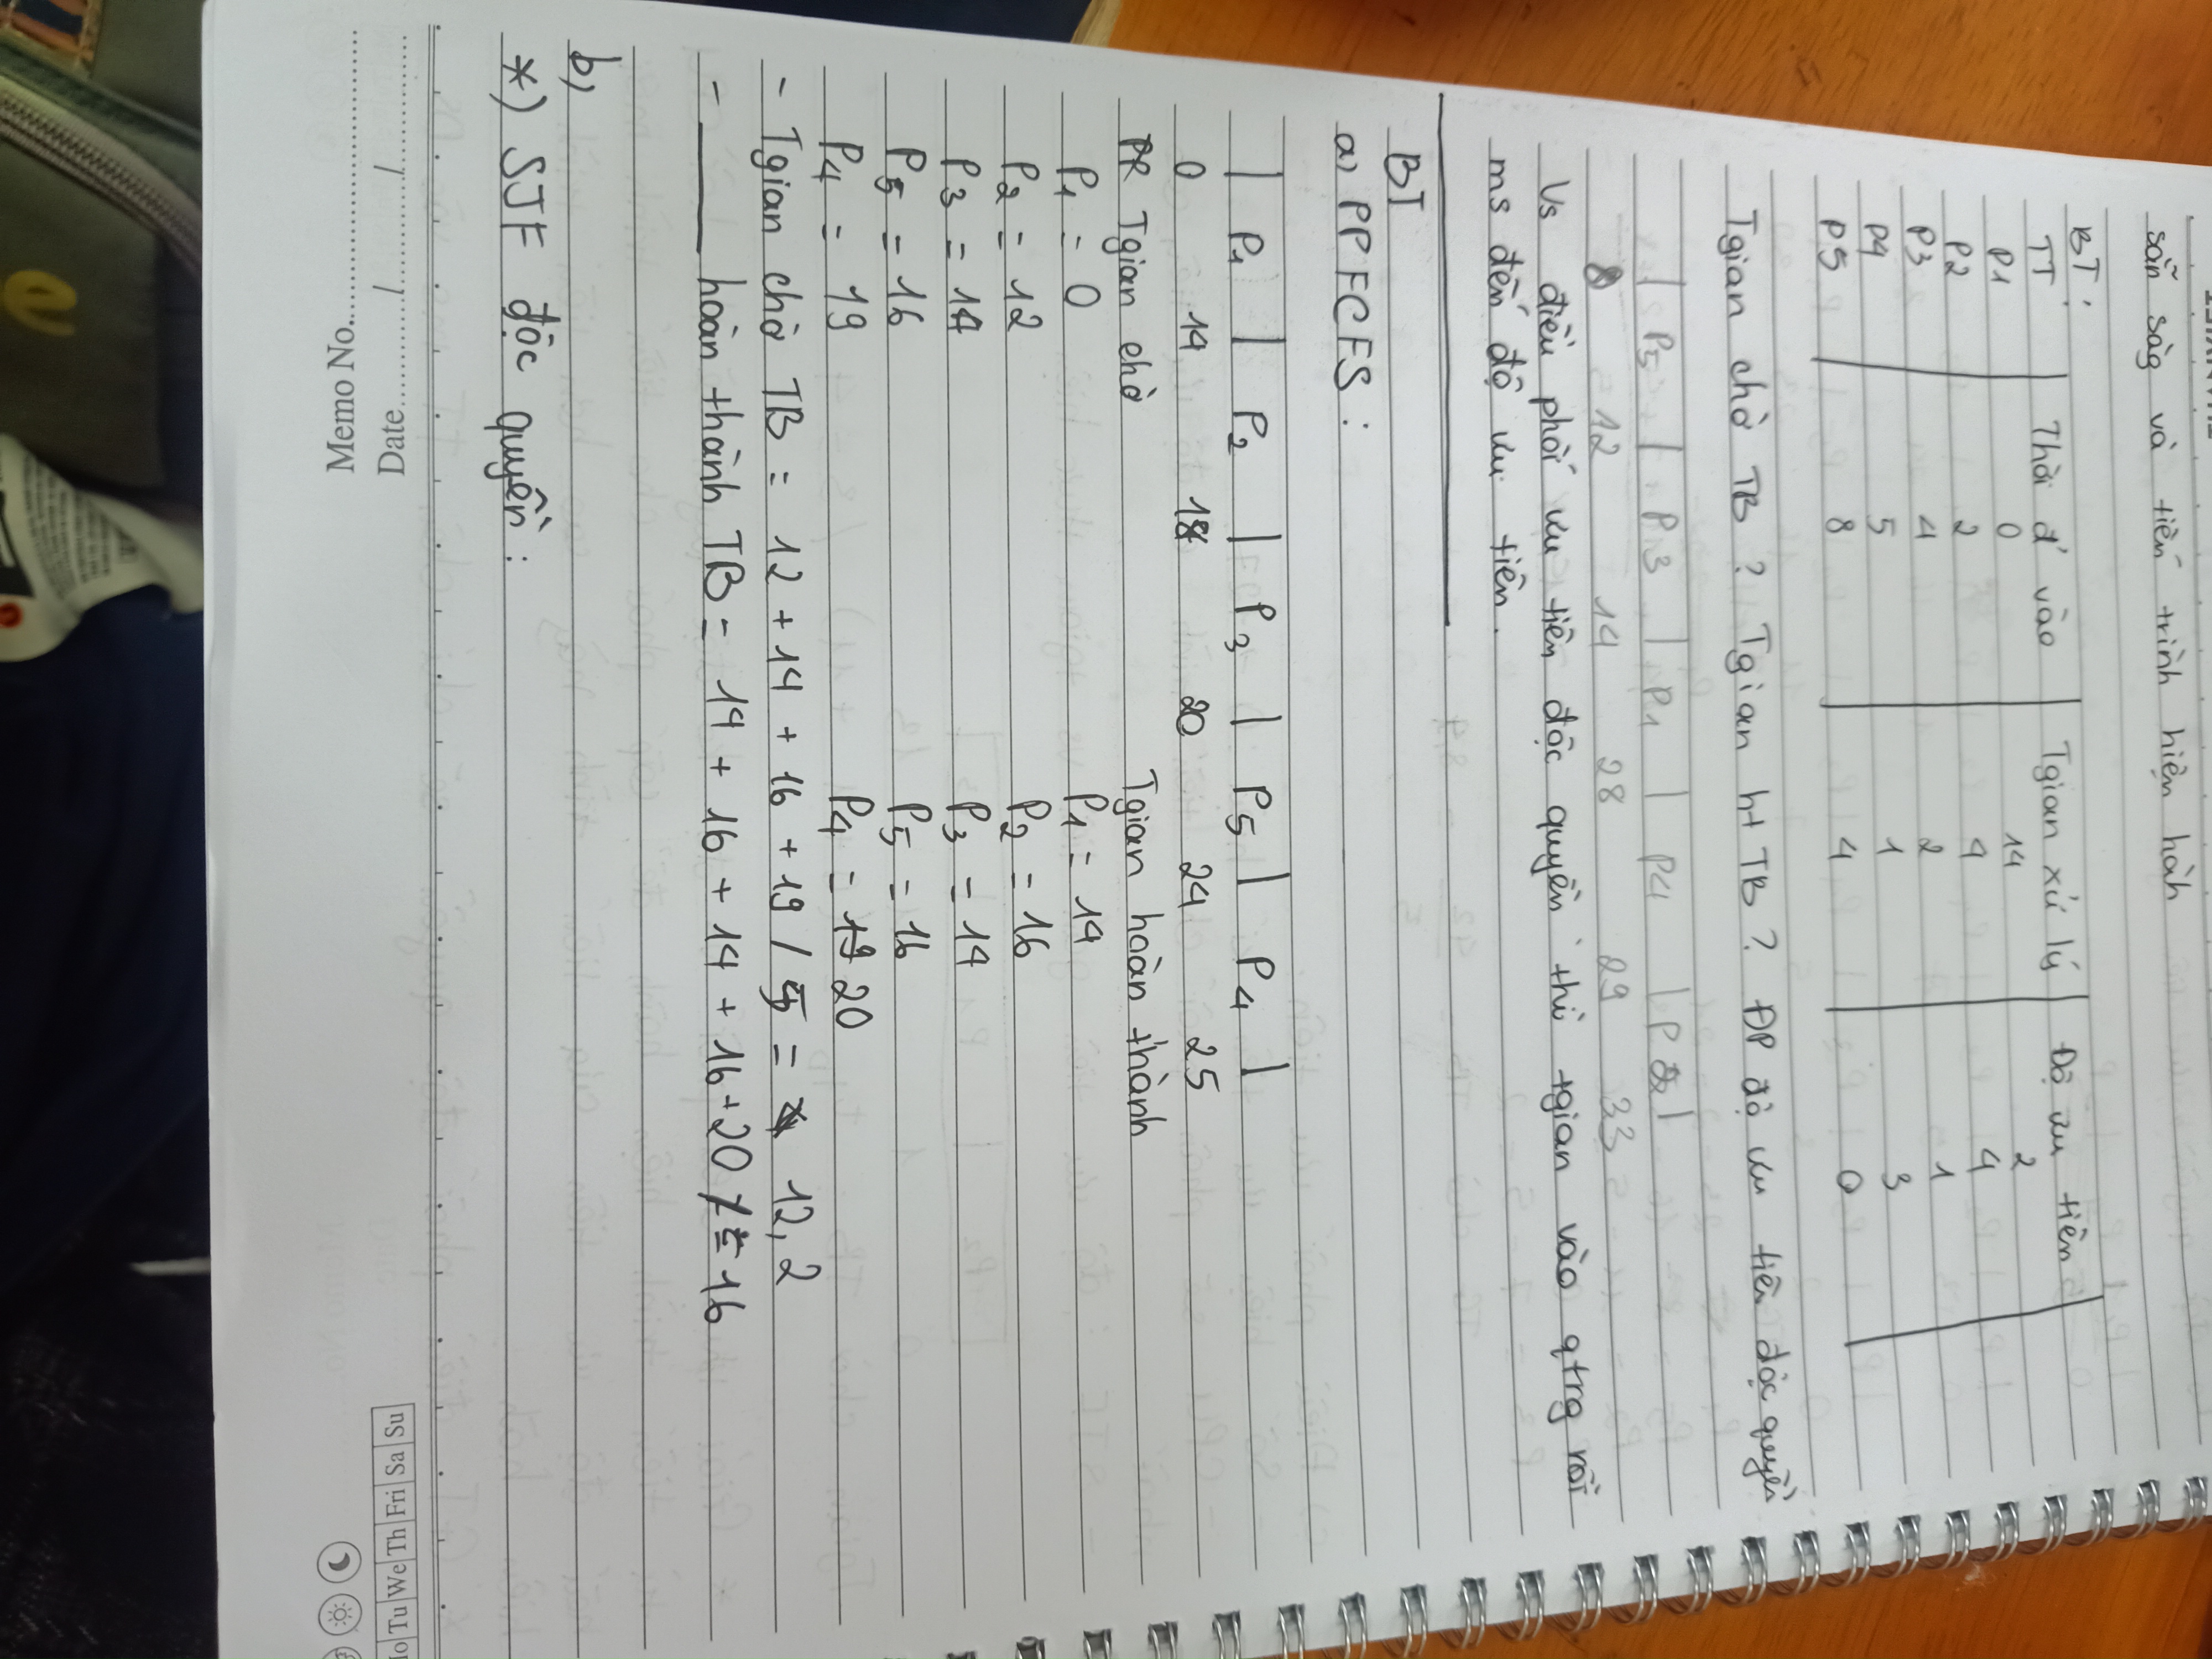 sẵn sàg và tiến trình hiện hành
BT:
TT Thời đ' vào Tgian xử lý Độ ưu tiên
P1 0 14 2
P2 2 4 4
P3 4 2 1
P4 5 1 3
P5 8 4 0
Tgian chờ TB ? Tgian ht TB ? ĐP độ ưu tiên độc quyền
| P5 | P3 | P1 | P4 | P2 |
8 12 14 28 29 33
Vs điều phối ưu tiên độc quyền thì tgian vào qtrg rồi
ms đến độ ưu tiên.
BT
a) PP FCFS :
| P1 | P2 | P3 | P5 | P4 |
0 14 18 20 24 25
Tgian chờ Tgian hoàn thành
P1 = 0 P1 = 14
P2 = 12 P2 = 16
P3 = 14 P3 = 14
P5 = 16 P5 = 16
P4 = 19 P4 = 19 20
- Tgian chờ TB = 12 + 14 + 16 + 19 / 5 = 12,2
- hoàn thành TB = 14 + 16 + 14 + 16 + 20 / = 16
b)
*) SJF độc quyền :
Memo No.
Date / /
Mo Tu We Th Fri Sa Su